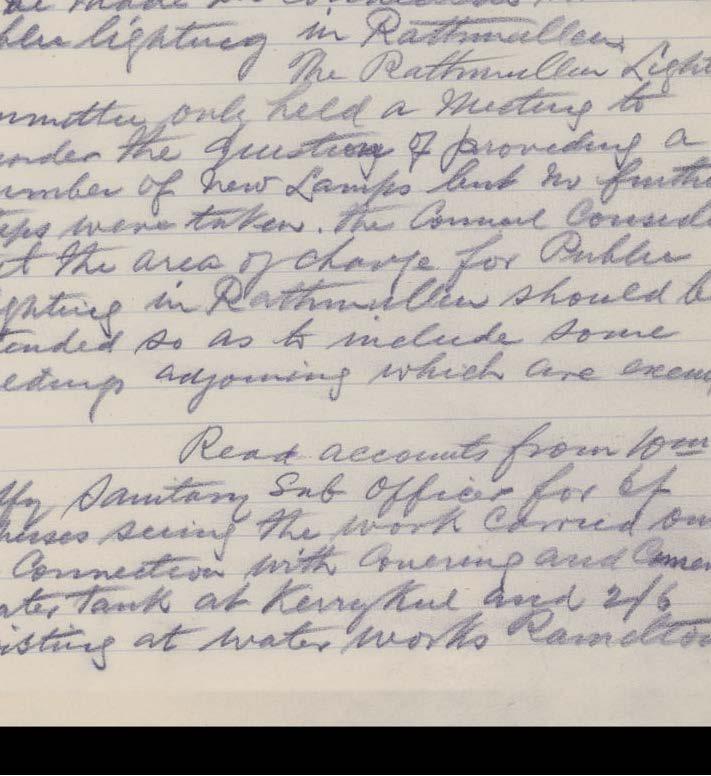 be made in connection
blic lighting in Rathmullen.
The Rathmullen Light
mmittee only held a Meeting to
nsider the Question of providing a
umber of new Lamps but no furthe
eps were taken. The Council Conside
at the area of charge for Public
ighting in Rathmullen should b
tended so as to include some
adjoining which are exem
Read accounts from Wm
ffy Sanitary Sub Officer for
seeing the work carried ou
Connection with Covering and Cemen
ater Tank at Kerrykeel and 2/6
isting at water works Ramelton